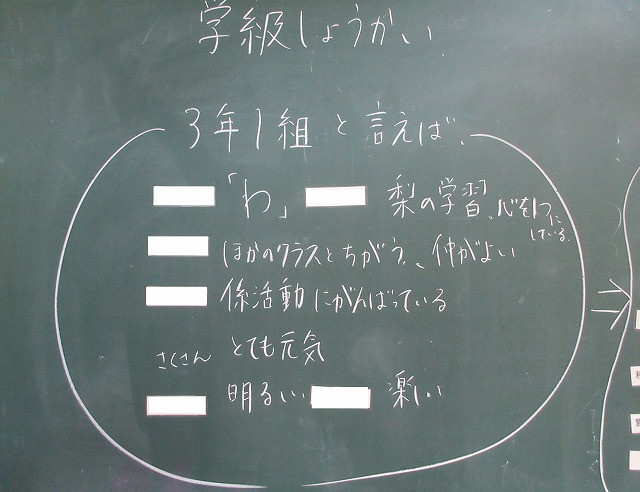 学級しょうかい
3年1組と言えば、
「わ」 梨の学習、心を1つに
している。
ほかのクラスとちがう、仲がよい
係活動にがんばっている
さくさん とても元気
明るい 楽しい